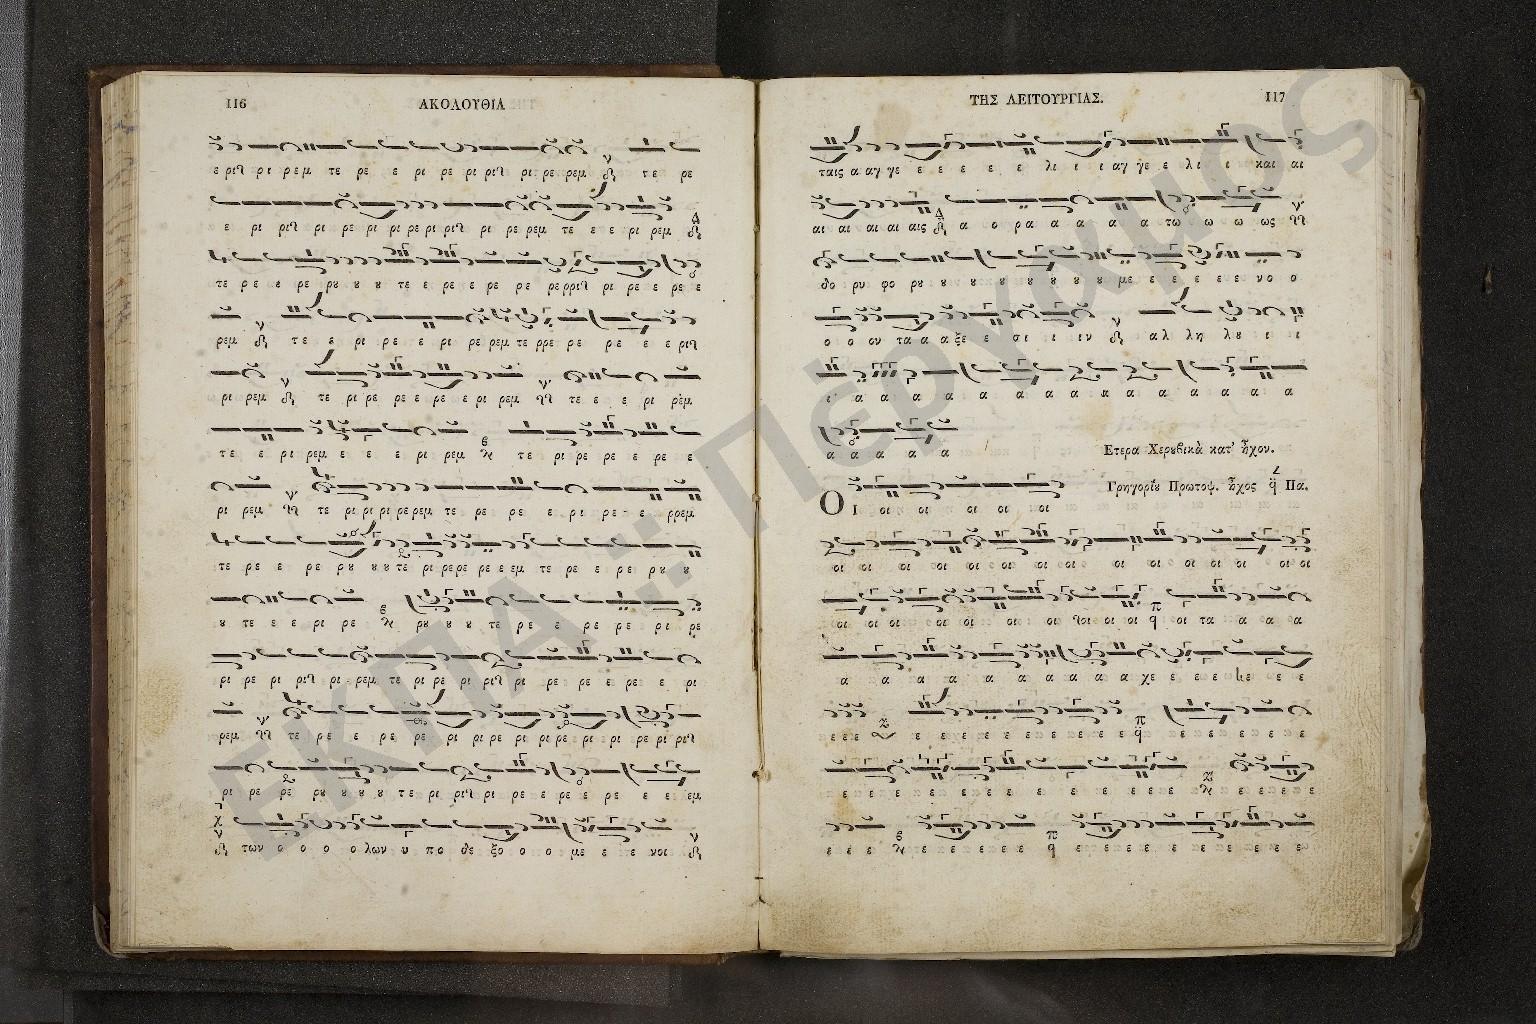 116
ΑΚΟΛΟΥΘΙΑ
ε ριρ ρι ρεμ τε ρε ε ρι ρε ρι ριρ ρι ρε ρεμ τε ρε
ε ρι ριρ ρι ρε ρι ρι ρε ρι ριρ ρι ρε ρεμ τε ε ε ρι ρεμ
τε ρε υ ρε ρυ υ υ τε ε ρε ε ρε ρε ρερριρ ρι ρε ε ρε ε
ρεμ τε ε ρι ρε ε ρι ρε ρεμ τε ρρε ρε ρε ε ε ριρ
ρι ρεμ τε ρι ρε ρε ε ρε ε ρι ρεμ τε ε ε ρι ρεμ
τε ε ρι ρεμ ε ε ε ρι ρεμ τε ρι ρε ρε ε ρε ε
ρι ρεμ τε ρι ρι ρι ρε ρεμ τε ρε ρε ε ρι ρε ε ρρεμ
τε ρε ε ρε ρυ υ υ τε ρι ρε ρε ρε ε εμ τε ρε ε ρε ρυ υ
υ τε ε ε ρι ρε ρυ υ υ τε ρε ε ρε ρε ρι ρε
ρι ρε ρι ριρ ρι ρεμ τε ρι ρε ρι ριρ ρι ρε ρε ε ρε ε ρι
ρεμ τε ρε ε ρε ρε ρι ρι ρε ρι ρι ρε ρι ρι ρε ρι ριρ
ρι ρε ρε ρυ υ υ υ τε ρι ριρ ρι ρε ε ρε ε ρε ε ε εμ
των ο ο ο ο λων υ πο δε ξο ο ο με ε τε νοι
ΤΗΣ ΛΕΙΤΟΥΡΓΙΑΣ.
117
ταις α αγ γε ε ε ε ε ε λι ι ι αγ γε ε λι ι και αι
αι αι αι αι αις α ο ρα α α α α τω ω ω ω ως
δο ρυ φο ρυ υ υ υ υ υ υ υ υ με ε ε ε ε ε νο ο
ο ο ον τα α α ξε ε σι ι ι ιν αλ λη λυ ι ι
ι α α α α α α α α α α α α α α
α α α α α
Ετερα Χερυβικὰ κατ' ἦχον.
Γρηγορίυ Πρωτοψ. ἦχος Πα.
Ο Ι οι οι οι οι οι
οι οι οι οι οι οι οι οι οι οι οι οι οι οι
οι οι οι οι οι οι οι οι οι οι οι τα α α α
α α α α α α α α α χε ε ε ε ε ε ε
ε ε ε ε ε ε ε ε ε ε ε ε ε ε ε ε ε ε ε
ε ε ε ε ε ε ε ε ε ε ε ε ε ε ε ε ε ε
ε ε ε ε ε ε ε ε ε ε ε ε ε ε ε ε ε ε
ΕΚΠΑ :: Πέργαμος